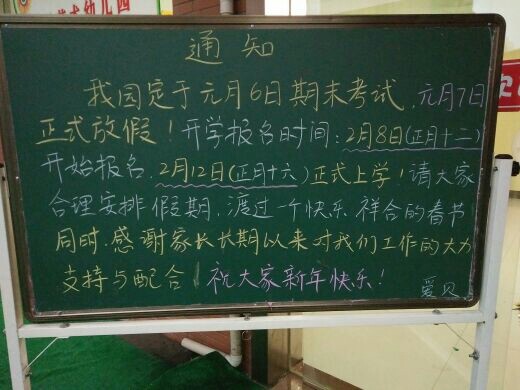 艺术幼儿园
通知
我园定于元月6日期末考试,元月7日
正式放假!开学报名时间:2月8日(正月十二)
开始报名,2月12日(正月十六)正式上学!请大家
合理安排假期,渡过一个快乐祥合的春节
同时,感谢家长长期以来对我们工作的大力
支持与配合!祝大家新年快乐!
爱贝